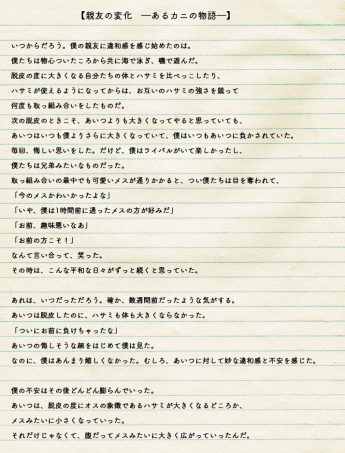 【親友の変化　―あるカニの物語―】
いつからだろう。僕の親友に違和感を感じ始めたのは。
僕たちは物心ついたころから共に海で泳ぎ、磯で遊んだ。
脱皮の度に大きくなる自分たちの体とハサミを比べっこしたり、
ハサミが使えるようになってからは、お互いのハサミの強さを競って
何度も取っ組み合いをしたものだ。
次の脱皮のときこそ、あいつよりも大きくなってやると思っていても、
あいつはいつも僕よりさらに大きくなっていて、僕はいつもあいつに負かされていた。
毎回、悔しい思いをした。だけど、僕はライバルがいて楽しかったし、
僕たちは兄弟みたいなものだった。
取っ組み合いの最中でも可愛いメスが通りかかると、つい僕たちは目を奪われて、
「今のメスかわいかったよな」
「いや、僕は1時間前に通ったメスの方が好みだ」
「お前、趣味悪いなあ」
「お前の方こそ！」
なんて言い合って、笑った。
その時は、こんな平和な日々がずっと続くと思っていた。
あれは、いつだっただろう。確か、数週間前だったような気がする。
あいつは脱皮したのに、ハサミも体も大きくならなかった。
「ついにお前に負けちゃったな」
あいつの悔しそうな顔をはじめて僕は見た。
なのに、僕はあんまり嬉しくなかった。むしろ、あいつに対して妙な違和感と不安を感じた。
僕の不安はその後どんどん膨らんでいった。
あいつは、脱皮の度にオスの象徴であるハサミが大きくなるどころか、
メスみたいに小さくなっていった。
それだけじゃなくて、腹だってメスみたいに大きく広がっていったんだ。